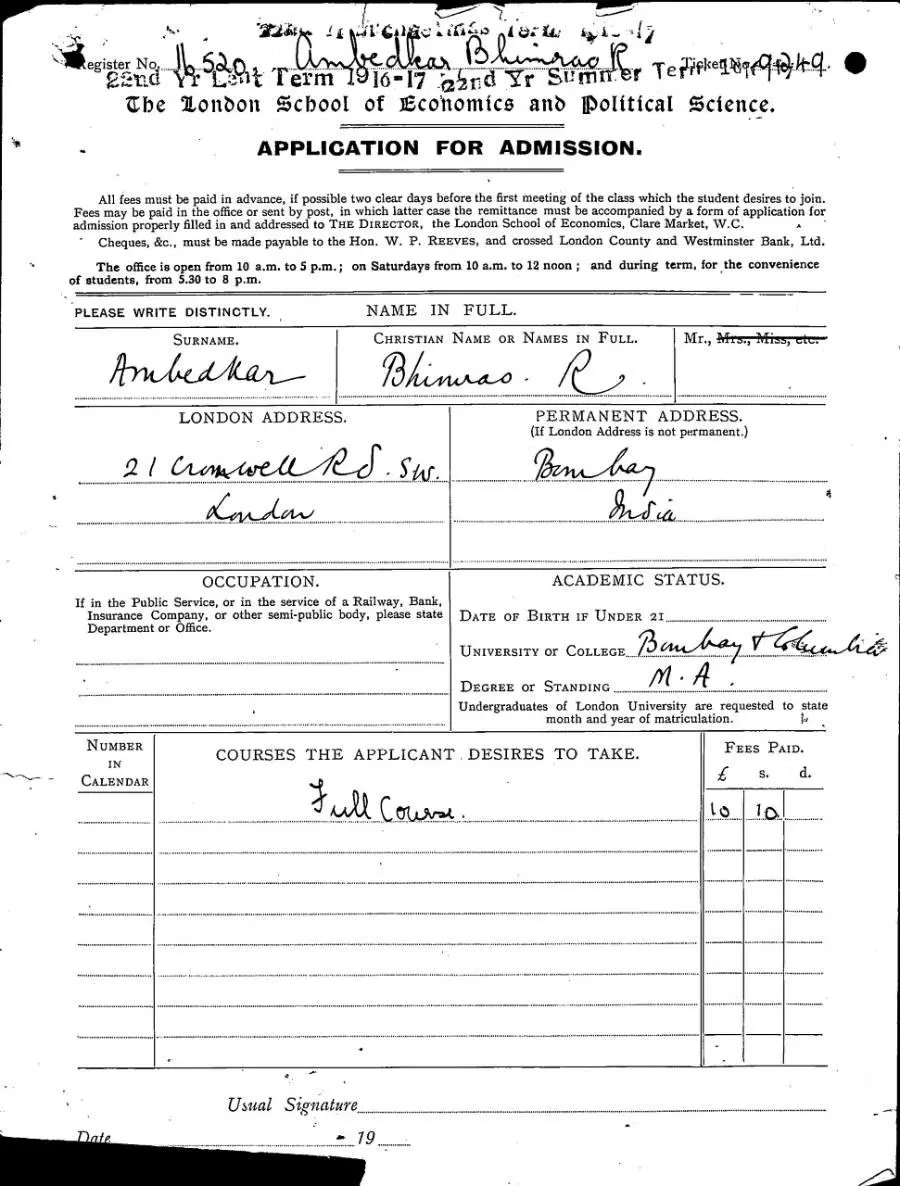 22nd Yr Michaelmas Term 1916-17
Register No. 16520. Ambedkar Bhimrao R Ticket No.
22nd Yr Lent Term 1916-17 22nd Yr Summer Term
The London School of Economics and Political Science.
APPLICATION FOR ADMISSION.
All fees must be paid in advance, if possible two clear days before the first meeting of the class which the student desires to join.
Fees may be paid in the office or sent by post, in which latter case the remittance must be accompanied by a form of application for
admission properly filled in and addressed to THE DIRECTOR, the London School of Economics, Clare Market, W.C.
Cheques, &c., must be made payable to the Hon. W. P. REEVES, and crossed London County and Westminster Bank, Ltd.
The office is open from 10 a.m. to 5 p.m.; on Saturdays from 10 a.m. to 12 noon; and during term, for the convenience
of students, from 5.30 to 8 p.m.
PLEASE WRITE DISTINCTLY. NAME IN FULL.
SURNAME. CHRISTIAN NAME OR NAMES IN FULL. Mr., Mrs., Miss, etc.
Ambedkar Bhimrao. R.
LONDON ADDRESS.
21 Cromwell Rd. SW.
London
PERMANENT ADDRESS.
(If London Address is not permanent.)
Bombay
India
OCCUPATION.
If in the Public Service, or in the service of a Railway, Bank,
Insurance Company, or other semi-public body, please state
Department or Office.
ACADEMIC STATUS.
DATE OF BIRTH IF UNDER 21
UNIVERSITY OR COLLEGE Bombay & Columbia
DEGREE OR STANDING M.A.
Undergraduates of London University are requested to state
month and year of matriculation.
NUMBER
IN
CALENDAR
COURSES THE APPLICANT DESIRES TO TAKE.
FEES PAID.
£ s. d.
Full Course. 10 10
Usual Signature
Date 19